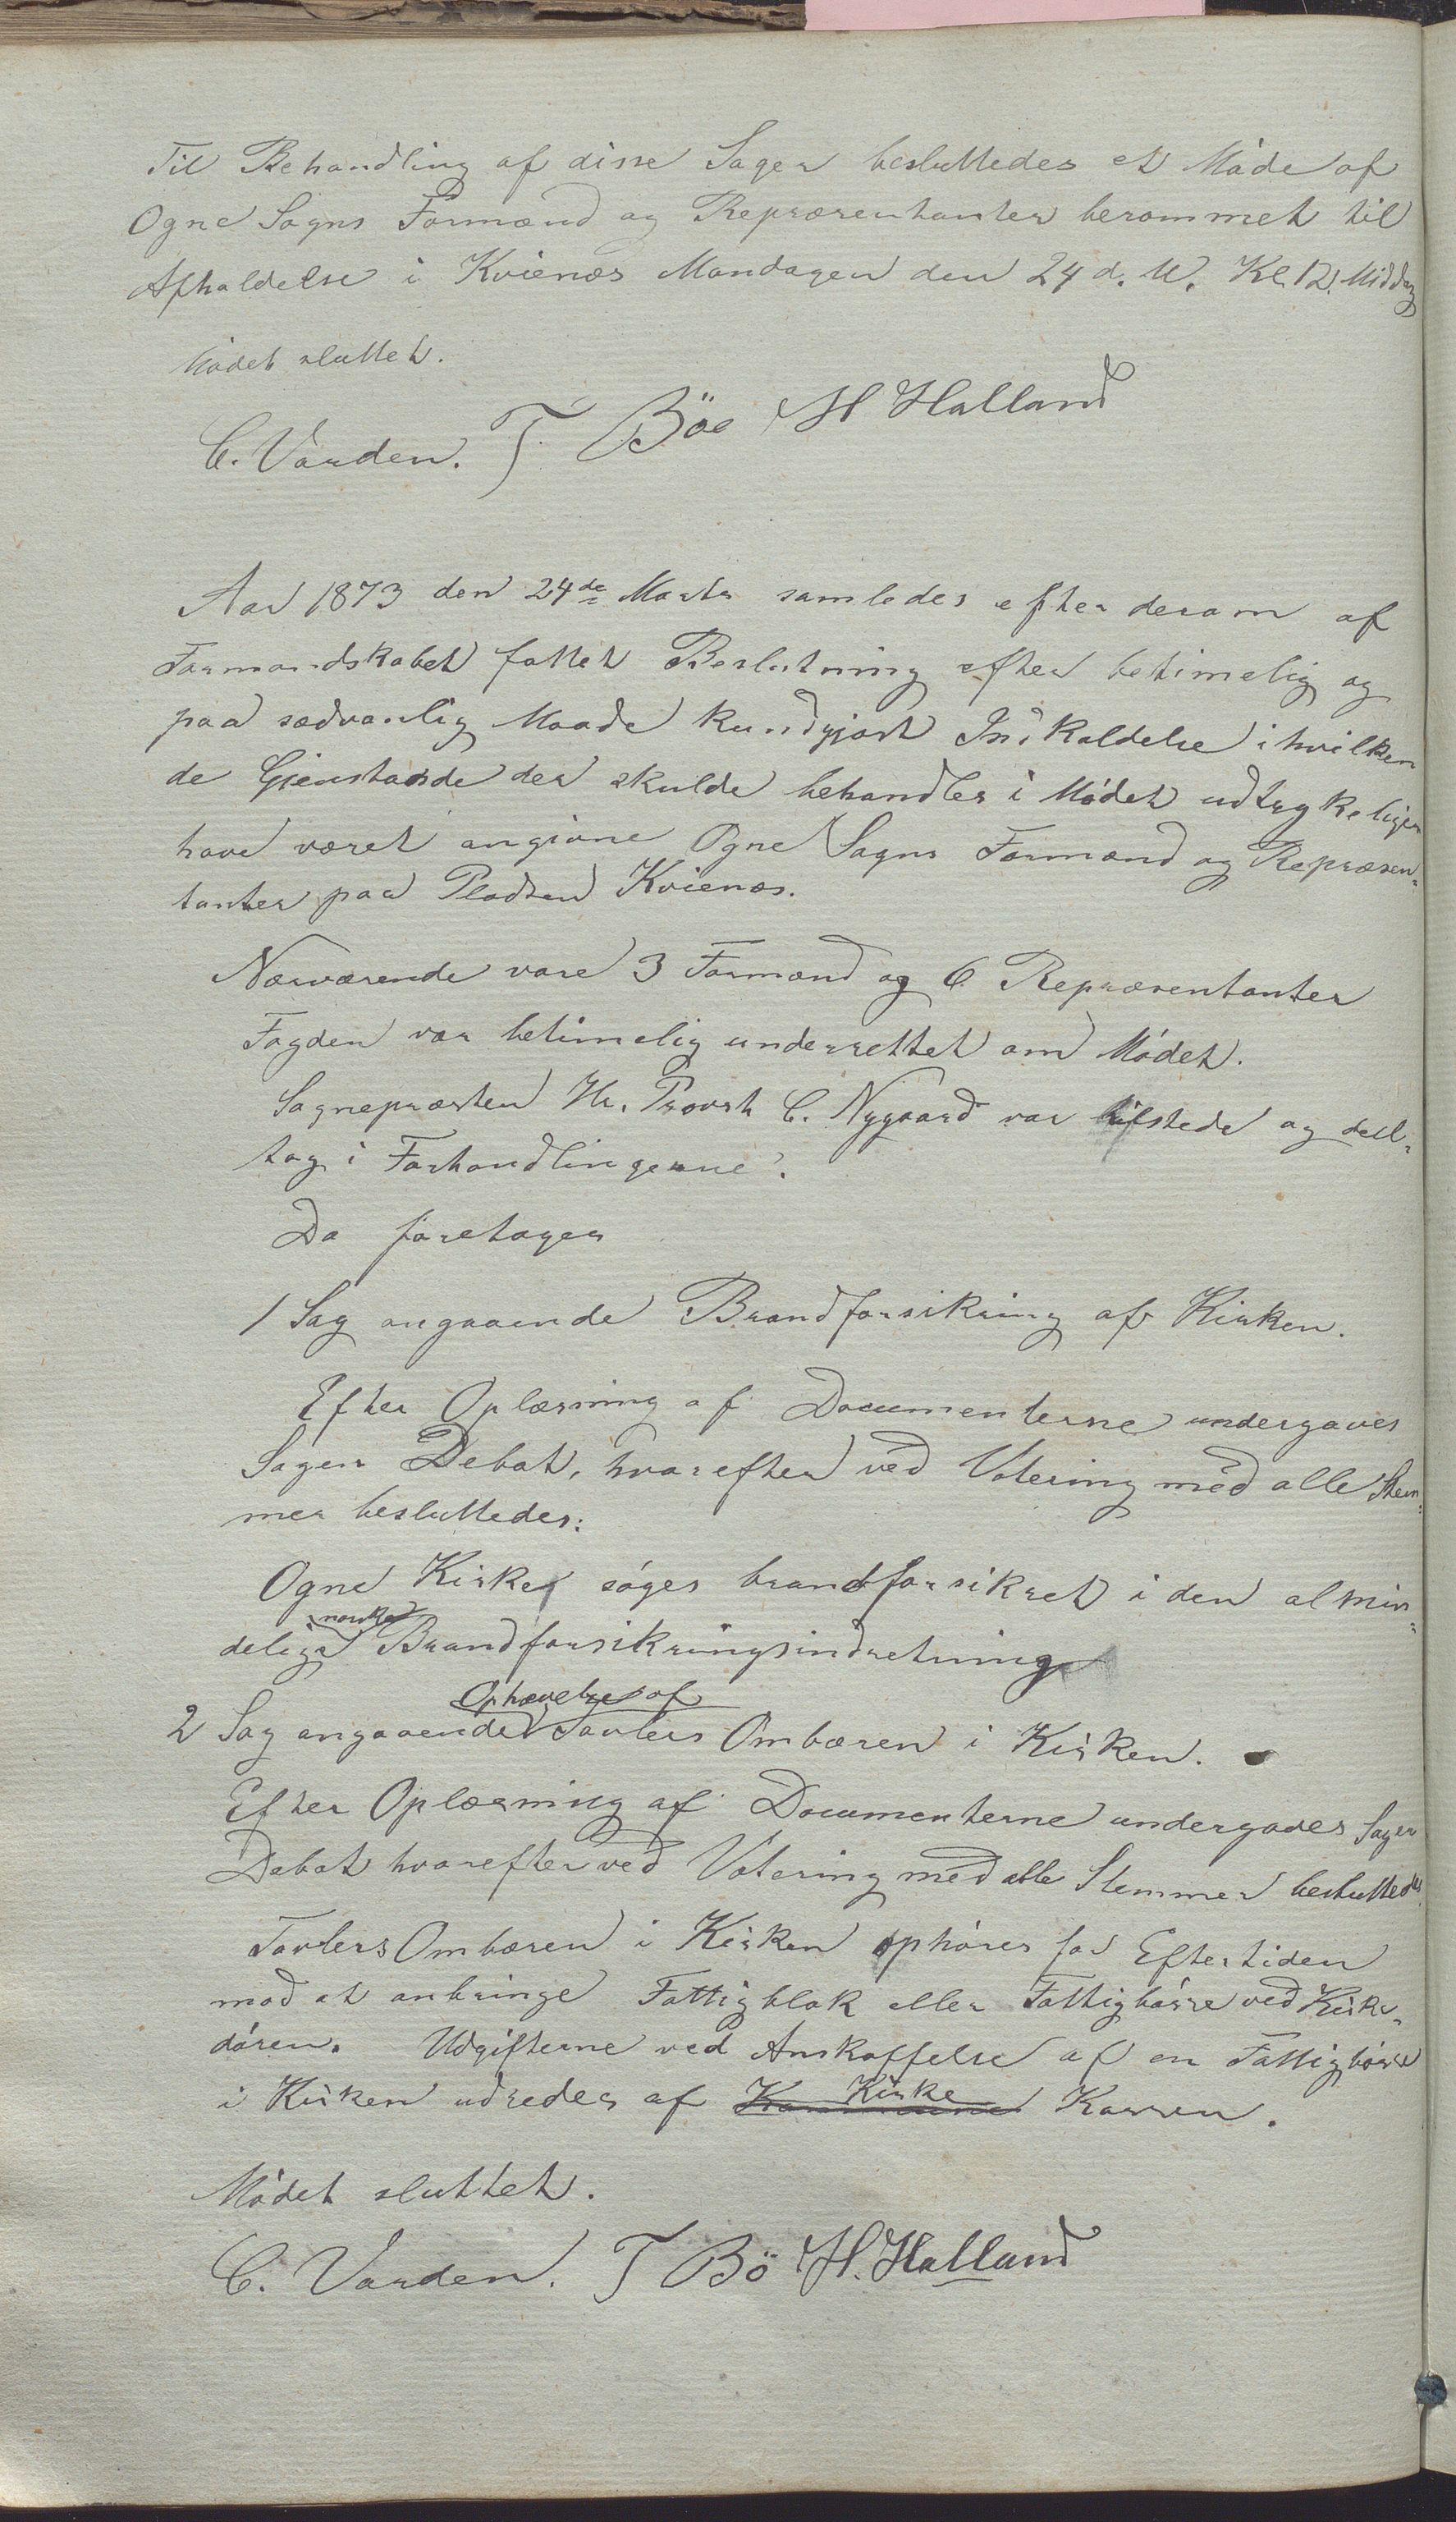 Til Behandling af disse Sager besluttedes et Møde af
Ogne Sogns Formænd og Repræsentanter berammet til
Afholdelse i Kvienes Mandagen den 24 d. M. Kl. 12 Middag
Mødet sluttet.
C. Varden. T Böe H Halland
Aar 1873 den 24de Marts samledes efter derom af
Formandskabet fattet Beslutning efter betimelig og
paa sædvanlig Maade kundgjort Indkaldelse i hvilken
de Gjenstande der skulde behandles i Mødet udtrykeligen
have været angivne Ogne Sogns Formænd og Repræsen-
tanter paa Pladsen Kvienes.
Nærværende vare 3 Formænd og 6 Repræsentanter
Fogden var betimelig underrettet om Mødet.
Sognepræsten Hr. Provst C. Nygaard var tilstede og dell-
tog i Forhandlingerne.
Da foretoges
1 Sag angaaende Brandforsikring af Kirken.
Efter Oplæsning af Documenterne undergaves
Sagen Debat, hvorefter ved Votering med alle Stem-
mer besluttedes:
Ogne Kirke søges brandforsikret i den almin-
delige norske Brandforsikringsindretning
2 Sag angaaende Ophævelse af Tavlers Ombæren i Kirken.
Efter Oplæsning af Documenterne undergaves Sagen
Debat hvorefter ved Votering med alle Stemmer besluttedes
Tavlers Ombæren i Kirken ophører for Eftertiden
mod at anbringe Fattigblok eller Fattigbøsse ved Kirke-
døren. Udgifterne ved Anskaffelse af en Fattigbøsse
i Kirken udredes af Kommune Kirke Kassen.
Mødet sluttet.
C. Varden. T Bö H. Halland